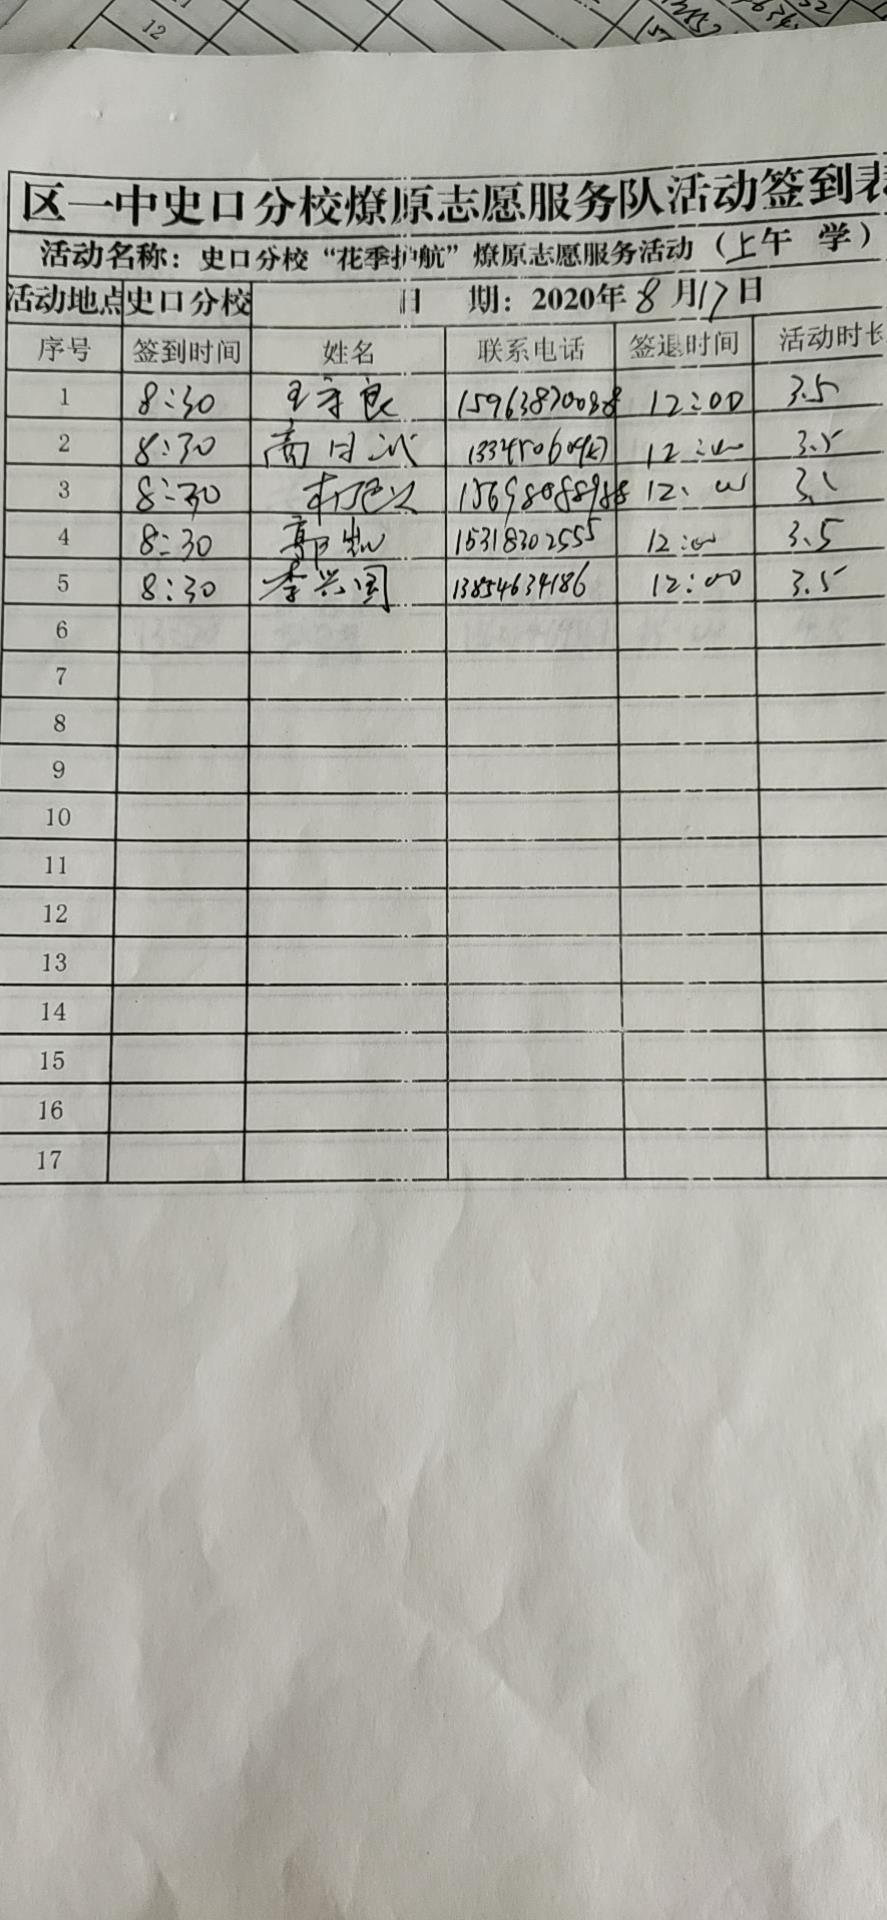 12
区一中史口分校燎原志愿服务队活动签到表
活动名称：史口分校“花季护航”燎原志愿服务活动（上午 学）
活动地点 史口分校 日 期：2020年8月17日
序号 签到时间 姓名 联系电话 签退时间 活动时长
1 8:30 王守良 12:00 3.5
2 8:30 高日 12:00 3.5
3 8:30 12:00
4 8:30 郭凯 15318302555 12:00 3.5
5 8:30 李兴国 13854634186 12:00 3.5
6
7
8
9
10
11
12
13
14
15
16
17